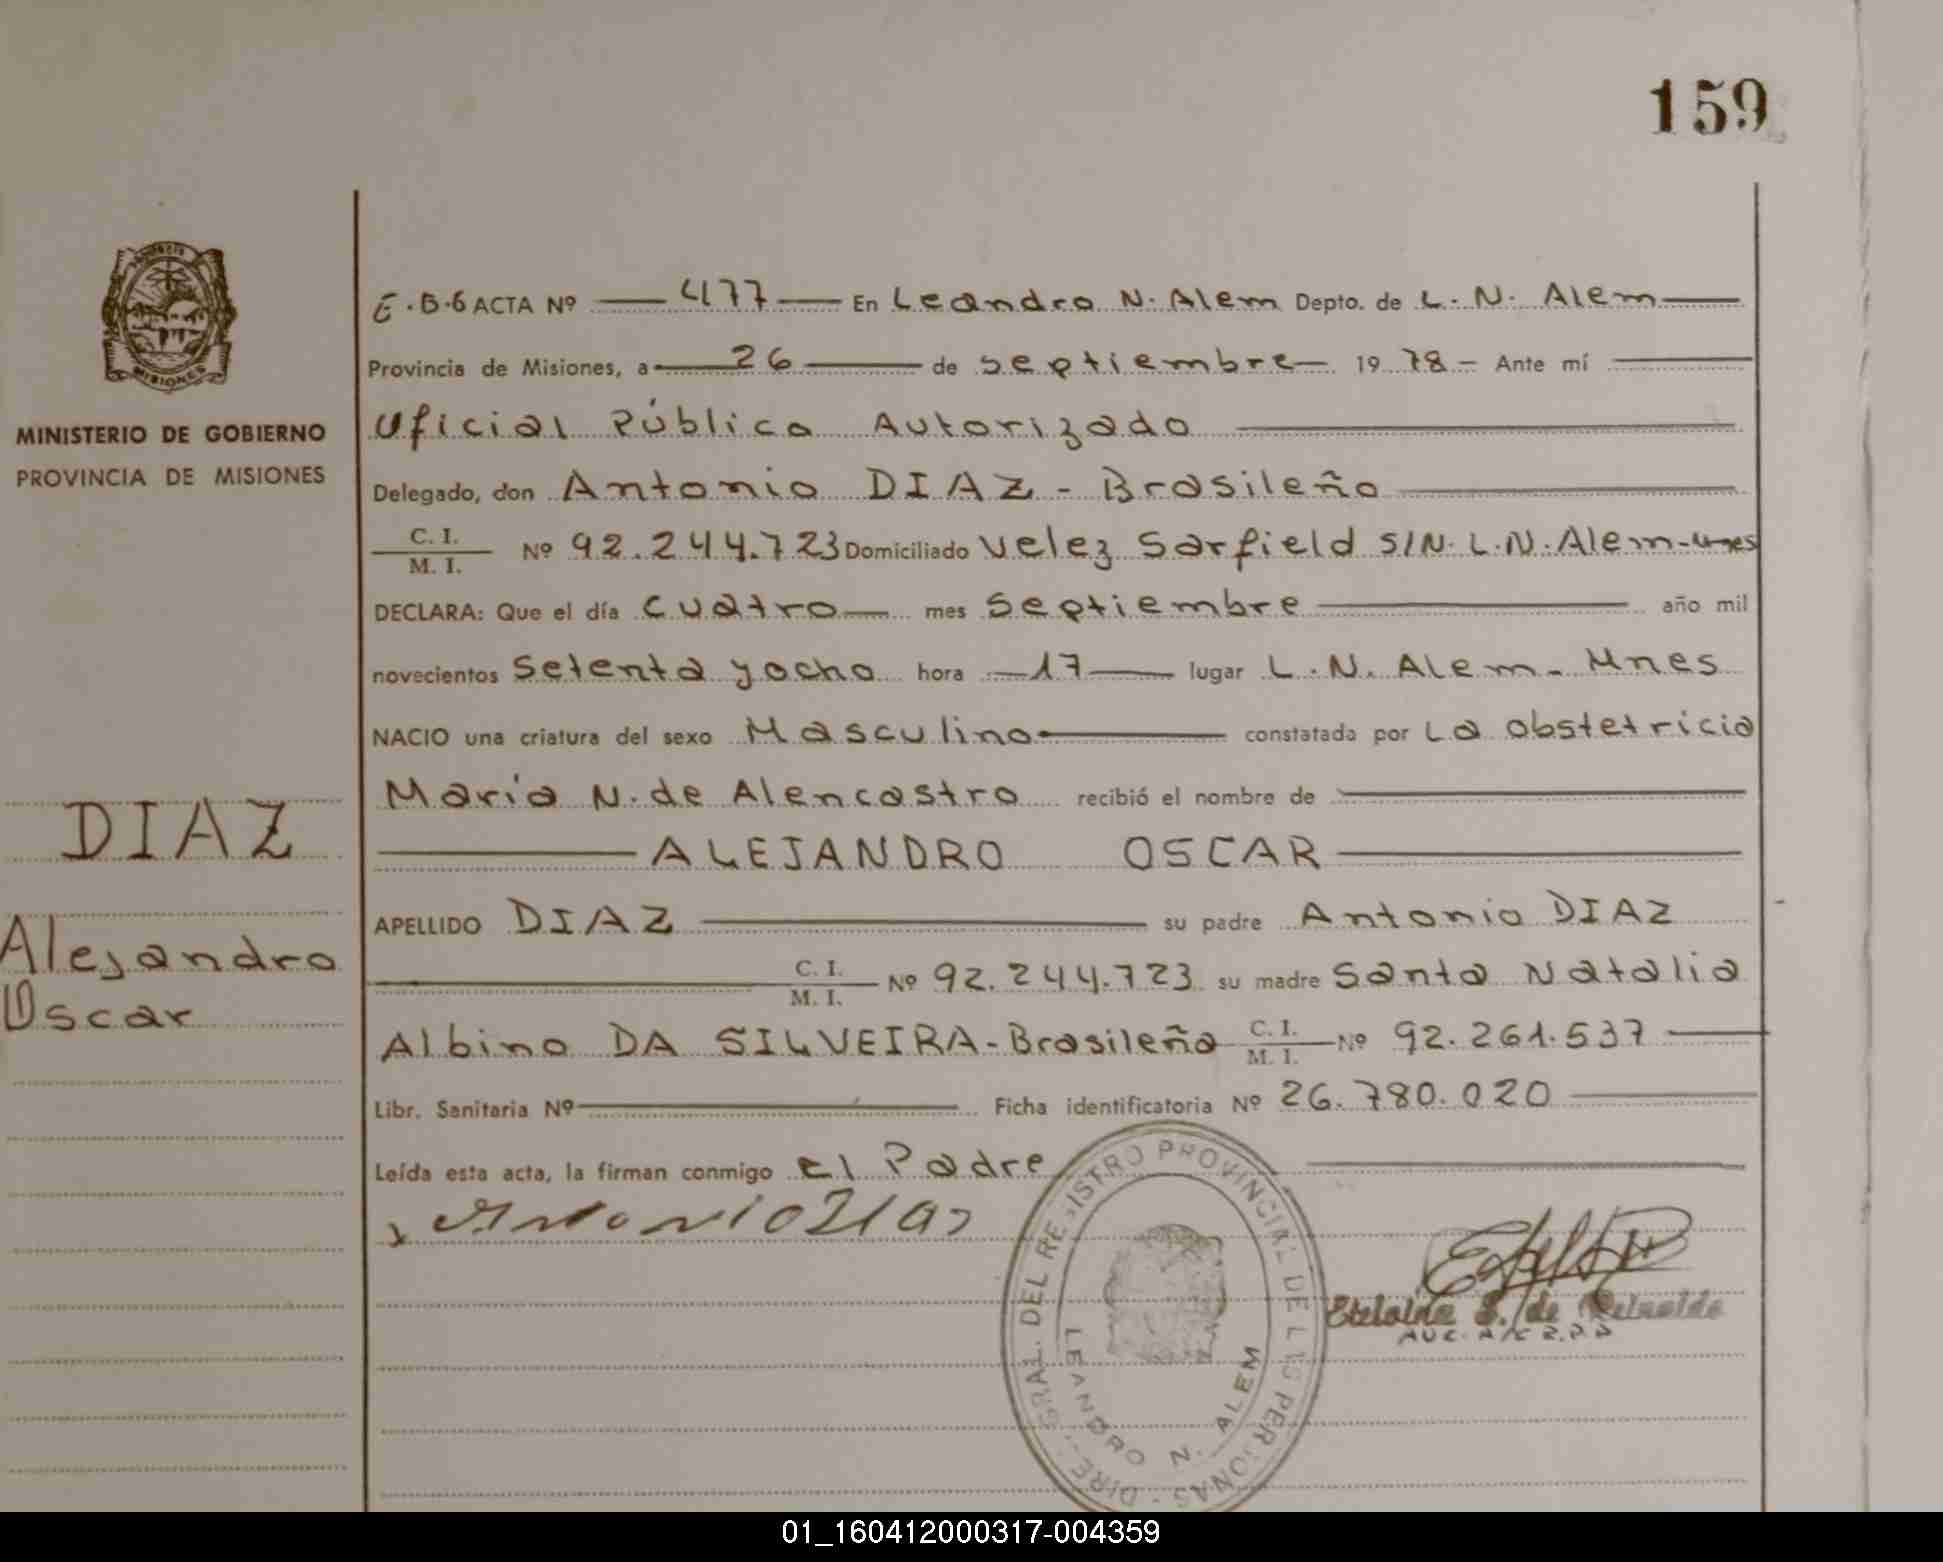 159
MINISTERIO DE GOBIERNO
PROVINCIA DE MISIONES
DIAZ
Alejandro
Oscar
E.B.6 ACTA Nº 477 En Leandro N. Alem Depto. de L. N. Alem
Provincia de Misiones, a 26 de septiembre 1978 - Ante mí
Oficial Público Autorizado
Delegado, don Antonio DIAZ - Brasileño
C. I.
M. I. Nº 92.244.723 Domiciliado Velez Sarfield S/N. L.N. Alem-Mnes
DECLARA: Que el día cuatro mes Septiembre año mil
novecientos Setenta y ocho hora 17 lugar L. N. Alem - Mnes
NACIO una criatura del sexo Masculino constatada por La obstetricia
Maria N. de Alencastro recibió el nombre de
ALEJANDRO OSCAR
APELLIDO DIAZ su padre Antonio DIAZ
C. I.
M. I. Nº 92.244.723 su madre Santa Natalia
Albino DA SILVEIRA - Brasileña C. I.
M. I. Nº 92.261.537
Libr. Sanitaria Nº Ficha identificatoria Nº 26.780.020
Leída esta acta, la firman conmigo el Padre
Antonio Diaz
DIRE. GRAL. DEL REGISTRO PROVINCIAL DE LAS PERSONAS
LEANDRO N. ALEM
S. de
01_160412000317-004359